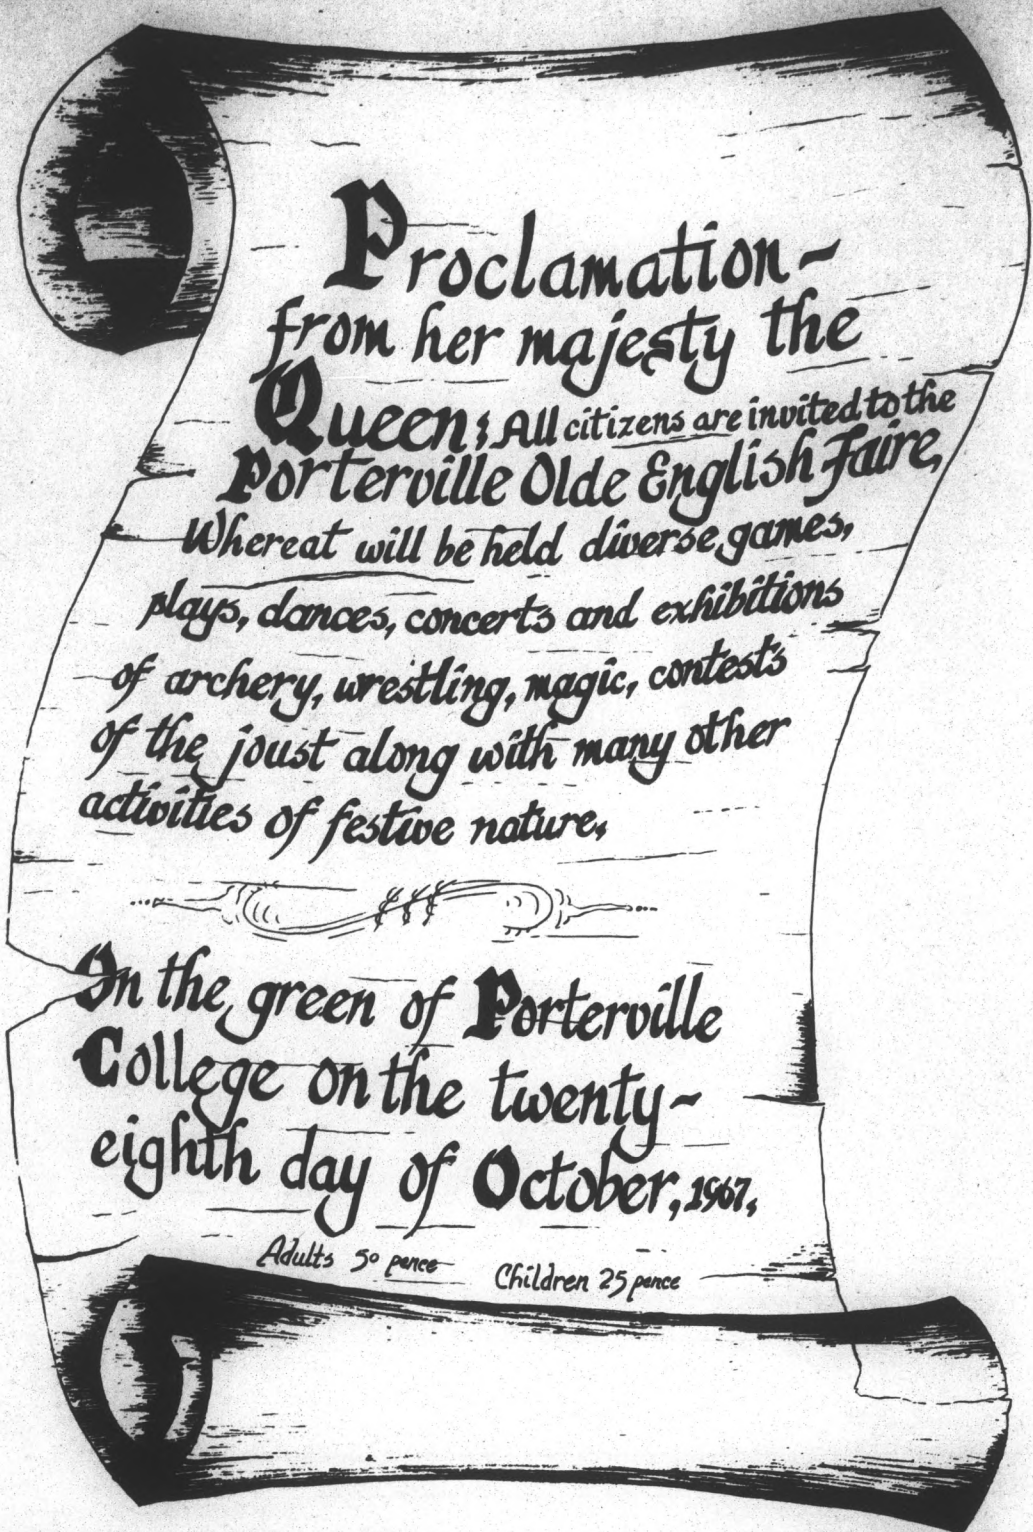 Proclamation-
from her majesty the
Queen; All citizens are invited to the
Porterville Olde English Faire,
Whereat will be held diverse games,
plays, dances, concerts and exhibitions
of archery, wrestling, magic, contests
of the joust along with many other
activities of festive nature,
On the green of Porterville
College on the twenty-
eighth day of October, 1967,
Adults 50 pence Children 25 pence